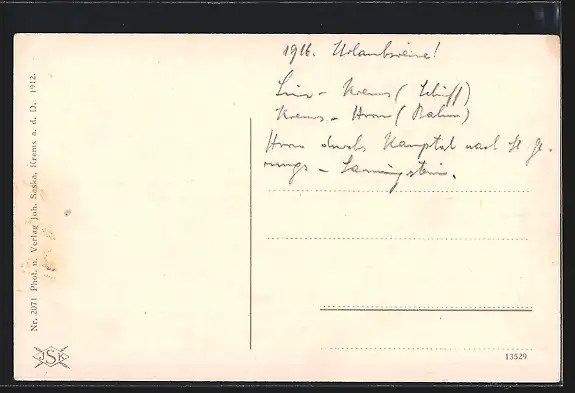 1916. Urlaubsreise!
Linz - Krems (Schiff)
Krems - Horn (Bahn)
Horn durchs Kamptal nach St. Ge-
rungs -
Nr. 2071 Phot. u. Verlag Joh. Saska, Krems a. d. D. 1912.
JSK
13529